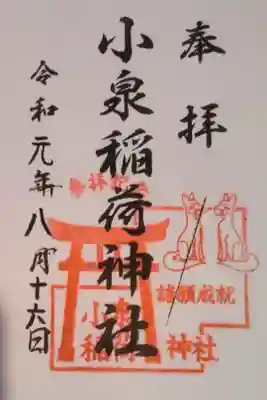 奉拝
小泉稲荷神社
令和元年八月十六日
諸願成就
小泉
稲荷神社